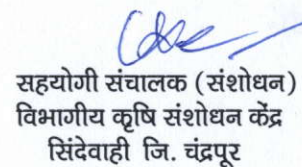 सहयोगी संचालक (संशोधन)
विभागीय कृषि संशोधन केंद्र
सिंदेवाही जि. चंद्रपूर